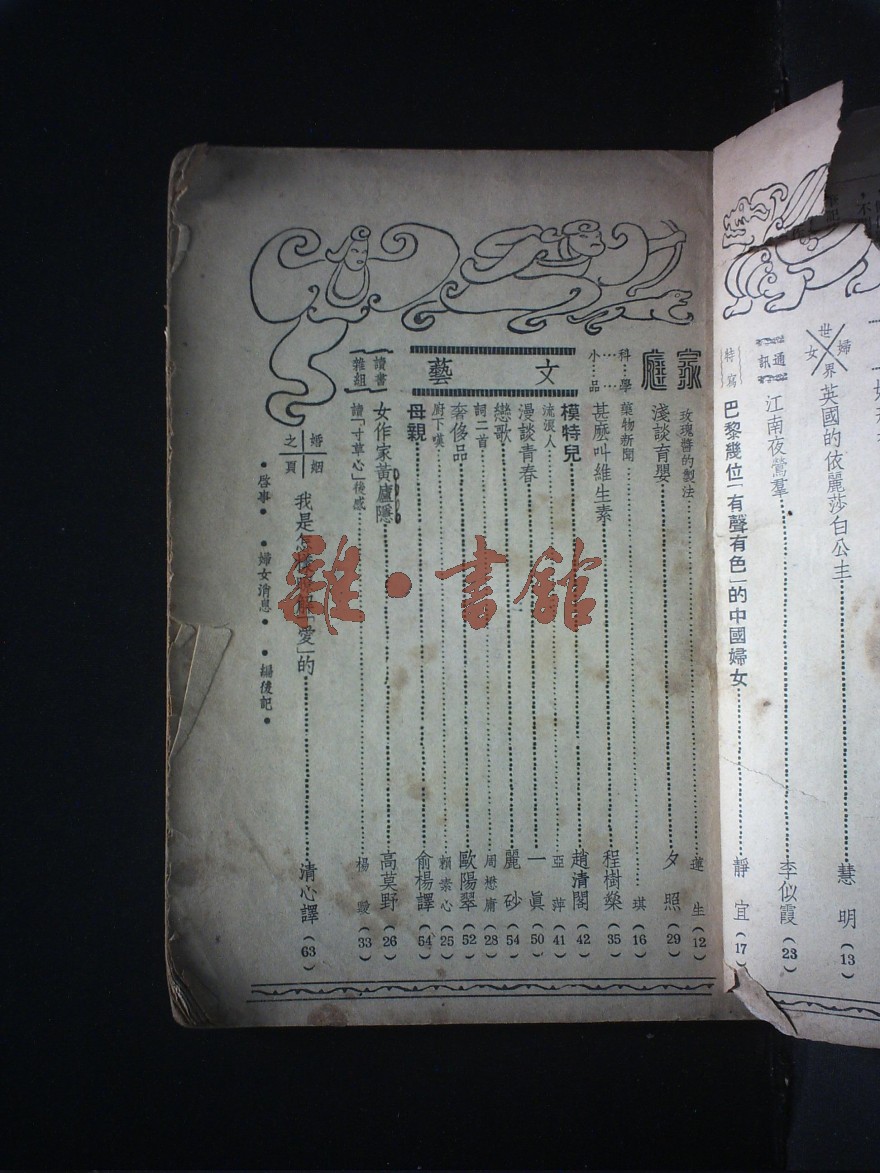 世界婦女
英國的依麗莎白公主 慧明 (13)
通訊
江南夜鶯羣 李似霞 (23)
特寫
巴黎幾位「有聲有色」的中國婦女 靜宜 (17)
家庭
玫瑰醬的製法 蓮生 (12)
淺談育嬰 夕照 (29)
科學小品
藥物新聞 琪 (16)
甚麼叫維生素 程樹榮 (35)
文藝
模特兒 趙清閣 (42)
流浪人 亞萍 (41)
漫談青春 一眞 (50)
戀歌 麗砂 (54)
詞二首 周懋庸 (28)
奢侈品 歐陽翠 (52)
廚下嘆 賴素心 (25)
母親 俞楊譯 (54)
讀書雜組
女作家黃廬隱 高莫野 (26)
讀「寸草心」後感 楊毅 (33)
婚姻之頁
我是怎樣理解「愛」的 清心譯 (63)
•啓事• •婦女消息• •編後記•
雜·書館